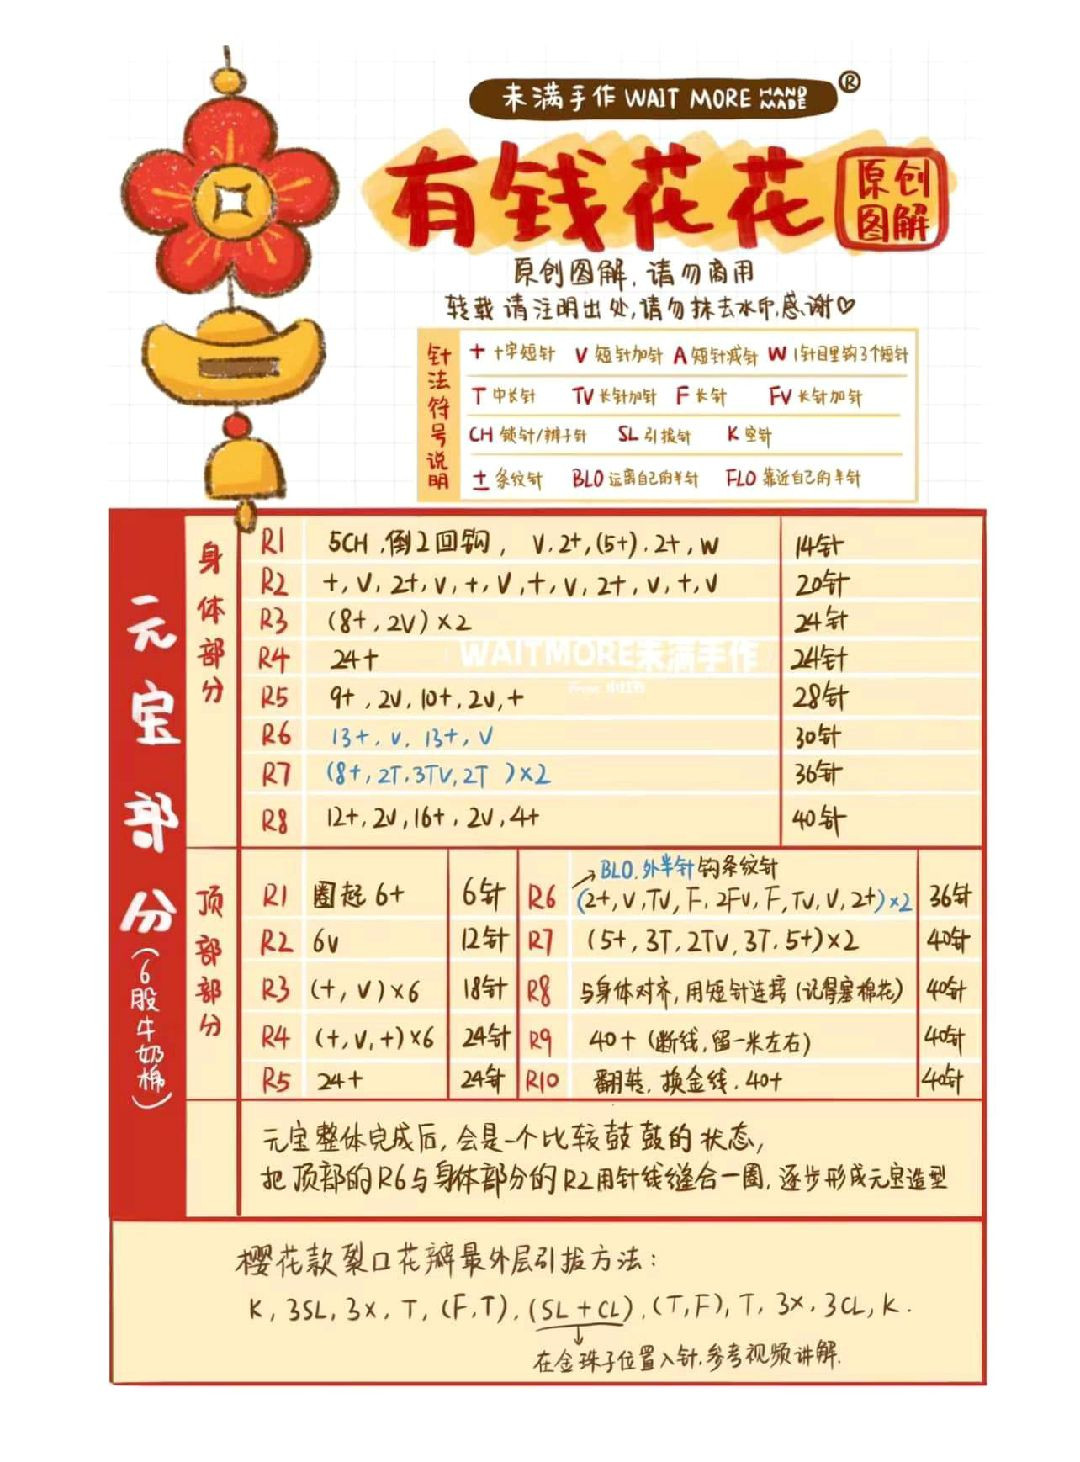 未满手作 WAIT MORE HAND MADE ®
有钱花花 原创图解
原创图解，请勿商用
转载请注明出处，请勿抹去水印，感谢♡
针法符号说明
+ 十字短针 V 短针加针 A 短针减针 W 1针目里钩3个短针
T 中长针 TV 长针加针 F 长针 FV 长针加针
CH 锁针/辫子针 SL 引拔针 K 空针
± 条纹针 BLO 远离自己的半针 FLO 靠近自己的半针
元宝部分（6股牛奶棉）
身体部分
R1 5CH，倒2回钩，V.2+,(5+).2+,W 14针
R2 +,V,2+,V,+,V,+,V,2+,V,+,V 20针
R3 (8+,2V)×2 24针
R4 24+ 24针
WAITMORE未满手作
R5 9+,2V,10+,2V,+ 28针
R6 13+,V,13+,V 30针
R7 (8+,2T.3TV,2T)×2 36针
R8 12+,2V,16+,2V,4+ 40针
顶部部分
R1 圈起6+ 6针
R2 6V 12针
R3 (+,V)×6 18针
R4 (+,V,+)×6 24针
R5 24+ 24针
BLO.外半针钩条纹针
R6 (2+,V,TV,F,2FV,F,TV,V,2+)×2 36针
R7 (5+,3T,2TV,3T.5+)×2 40针
R8 与身体对齐，用短针连接（记得塞棉花） 40针
R9 40+（断线，留一米左右） 40针
R10 翻转，换金线.40+ 40针
元宝整体完成后，会是一个比较鼓鼓的状态，
把顶部的R6与身体部分的R2用针线缝合一圈，逐步形成元宝造型
樱花款裂口花瓣最外层引拔方法：
K, 3SL, 3×, T, (F,T), (SL+CL), (T,F), T, 3×, 3CL, K.
在金珠子位置入针，参考视频讲解.